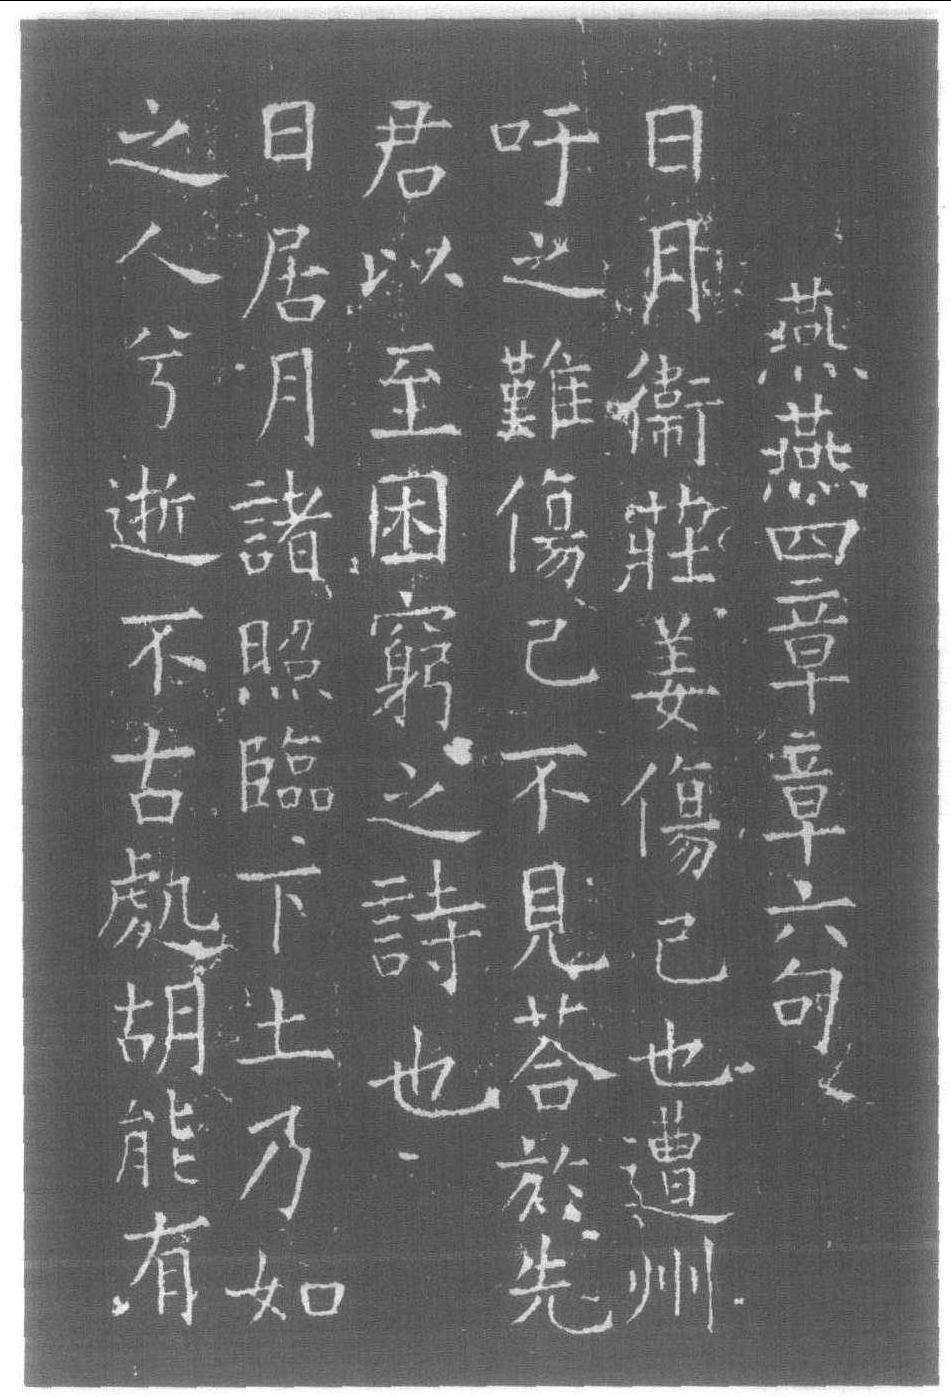 燕燕四章章六句
日月衛莊姜傷己也遭州
吁之難傷己不見荅於先
君以至困窮之詩也
日居月諸照臨下土乃如
之人兮逝不古處胡能有